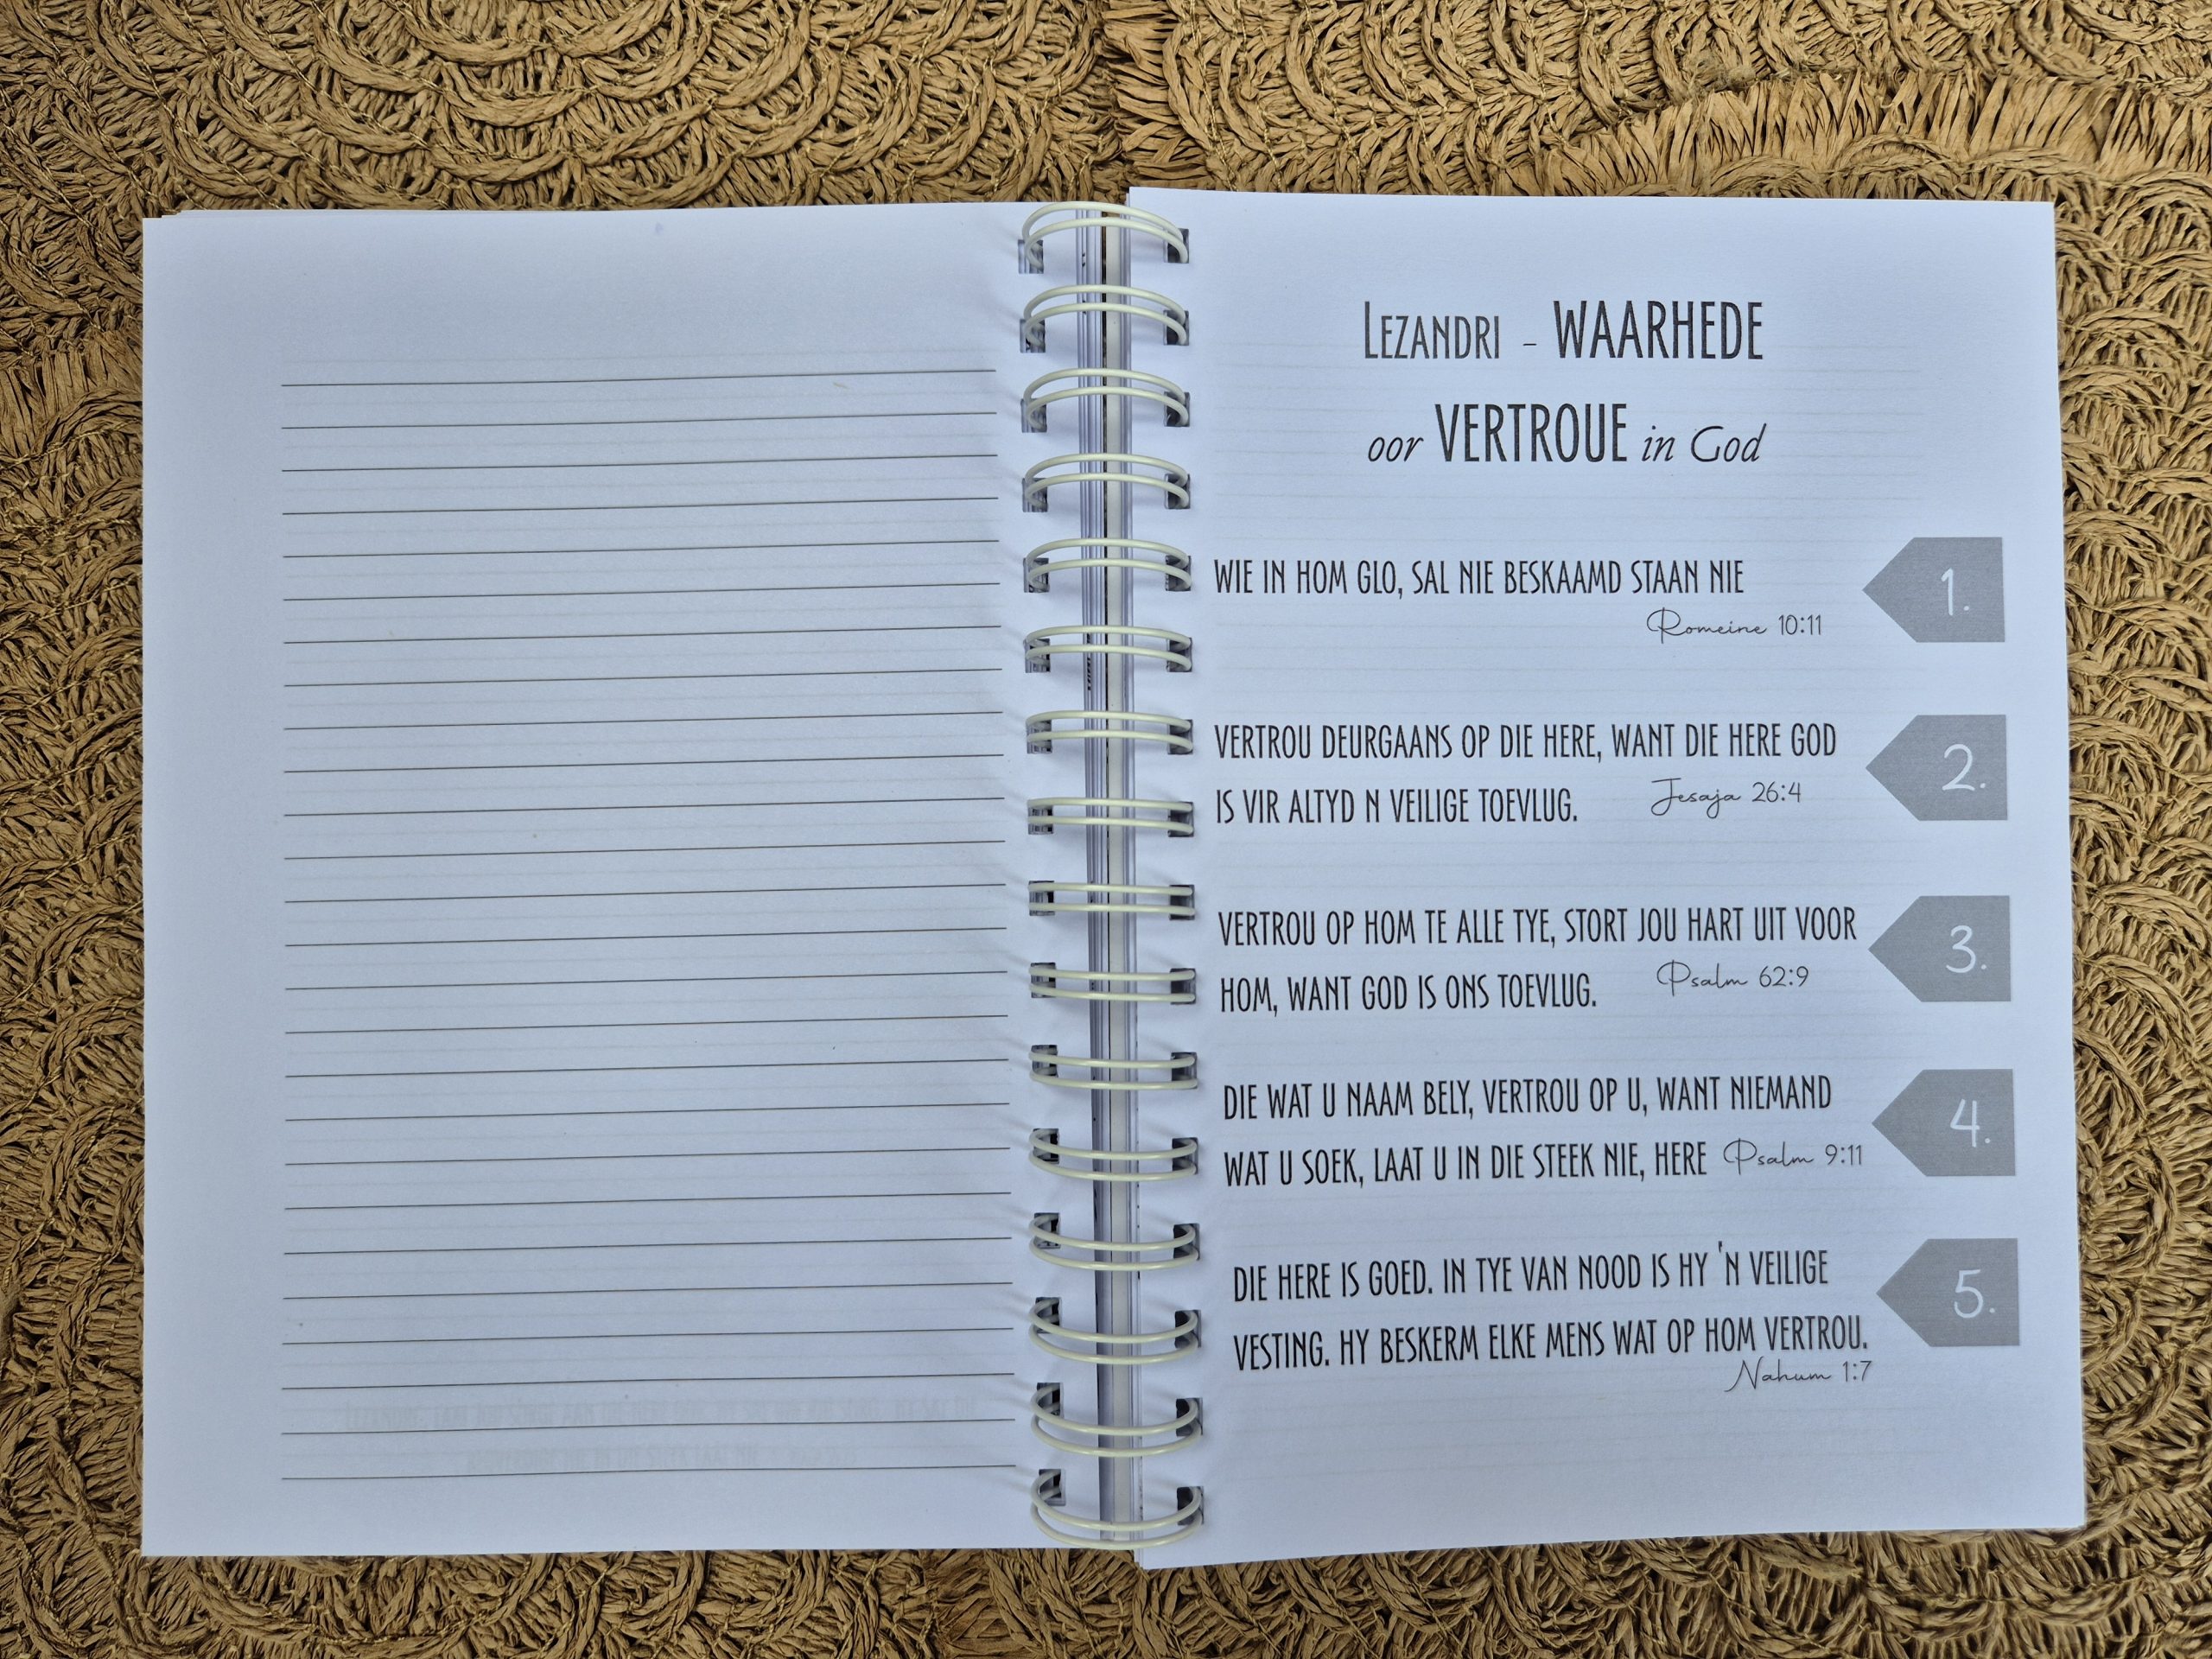 LEZANDRI - WAARHEDE
oor VERTROUE in God
WIE IN HOM GLO, SAL NIE BESKAAMD STAAN NIE
1.
Romeine 10:11
VERTROU DEURGAANS OP DIE HERE, WANT DIE HERE GOD
2.
IS VIR ALTYD N VEILIGE TOEVLUG. Jesaja 26:4
VERTROU OP HOM TE ALLE TYE, STORT JOU HART UIT VOOR
3.
HOM, WANT GOD IS ONS TOEVLUG. Psalm 62:9
DIE WAT U NAAM BELY, VERTROU OP U, WANT NIEMAND
4.
WAT U SOEK, LAAT U IN DIE STEEK NIE, HERE Psalm 9:11
DIE HERE IS GOED. IN TYE VAN NOOD IS HY 'N VEILIGE
5.
VESTING. HY BESKERM ELKE MENS WAT OP HOM VERTROU.
Nahum 1:7